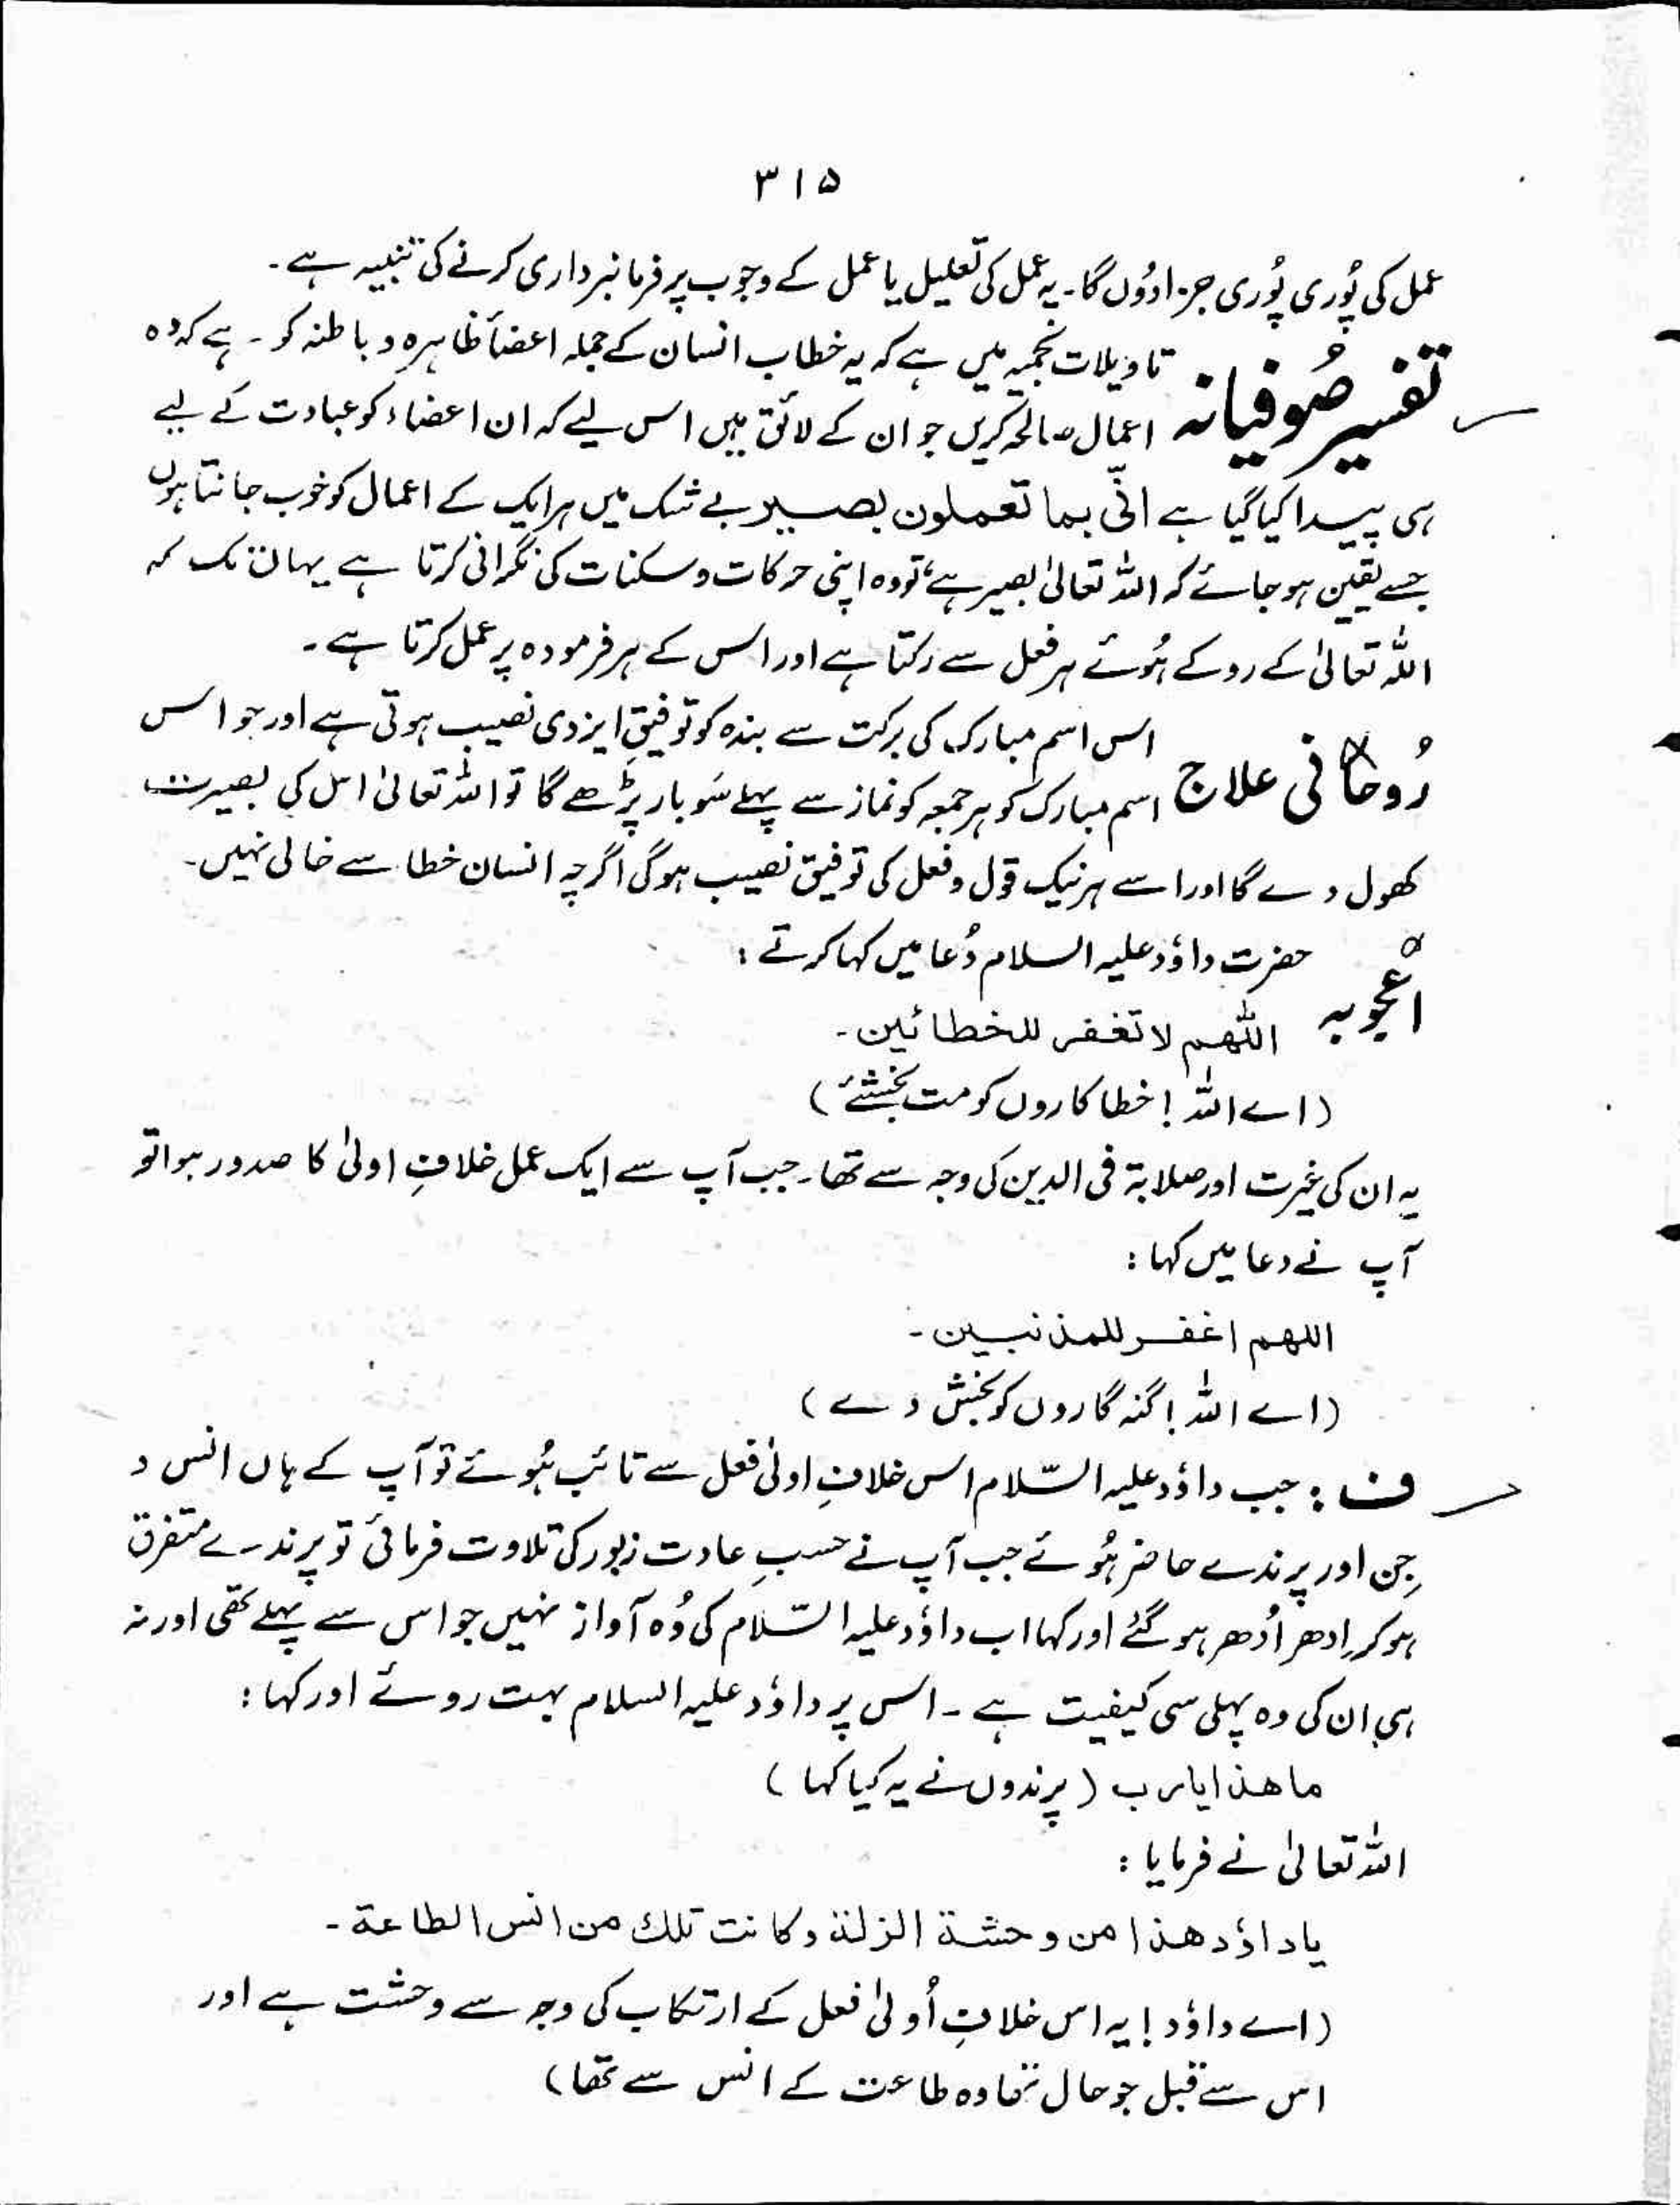 ۳۱۵
عمل کی پُوری پُوری جزا دُوں گا۔ یہ عمل کی تعلیل یا عمل کے وجوب پر فرمانبرداری کرنے کی تنبیہ ہے۔
تفسیر صُوفیانہ تاویلات نجمیہ میں ہے کہ یہ خطاب انسان کے جملہ اعضأ ظاہرہ و باطنہ کو ۔ ہے کہ وہ
اعمال صالحہ کریں جو ان کے لائق ہیں اس لیے کہ ان اعضاء کو عبادت کے لیے
ہی پیدا کیا گیا ہے انّی بما تعملون بصیر بے شک میں ہر ایک کے اعمال کو خوب جانتا ہوں
جسے یقین ہو جائے کہ اللہ تعالیٰ بصیر ہے، تو وہ اپنی حرکات و سکنات کی نگرانی کرتا ہے یہاں تک کہ
اللہ تعالیٰ کے روکے ہُوئے ہر فعل سے رُکتا ہے اور اس کے ہر فرمودہ پر عمل کرتا ہے۔
رُوحانی علاج اس اسم مبارک کی برکت سے بندہ کو توفیقِ ایزدی نصیب ہوتی ہے اور جو اس
اسم مبارک کو ہر جمعہ کو نماز سے پہلے سَو بار پڑھے گا تو اللہ تعالیٰ اس کی بصیرت
کھول دے گا اور اسے ہر نیک قول و فعل کی توفیق نصیب ہوگی اگرچہ انسان خطا سے خالی نہیں۔
اُعجوبہ حضرت داؤد علیہ السلام دُعا میں کہا کرتے :
اللّٰھم لا تغفر للخطائین۔
(اے اللہ ! خطا کاروں کو مت بخشئے)
یہ ان کی غیرت اور صلابۃ فی الدین کی وجہ سے تھا۔ جب آپ سے ایک عمل خلافِ اولیٰ کا صدور ہوا تو
آپ نے دعا میں کہا :
اللھم اغفر للمذنبین۔
(اے اللہ ! گنہ گاروں کو بخش دے)
ف : جب داؤد علیہ السّلام اس خلافِ اولیٰ فعل سے تائب ہُوئے تو آپ کے ہاں انس و
جِن اور پرندے حاضر ہُوئے جب آپ نے حسبِ عادت زبور کی تلاوت فرمائی تو پرندے متفرق
ہو کر اِدھر اُدھر ہو گئے اور کہا اب داؤد علیہ السّلام کی وُہ آواز نہیں جو اس سے پہلے تھی اور نہ
ہی ان کی وہ پہلی سی کیفیت ہے ۔ اس پر داؤد علیہ السلام بہت روئے اور کہا :
ما ھذا یا رب ( پرندوں نے یہ کیا کہا )
اللہ تعالیٰ نے فرمایا :
یا داؤد ھذا من وحشة الزلة وکانت تلك من انس الطاعة۔
(اے داؤد ! یہ اس خلافِ اُولیٰ فعل کے ارتکاب کی وجہ سے وحشت ہے اور
اس سے قبل جو حال تھا وہ طاعت کے انس سے تھا)